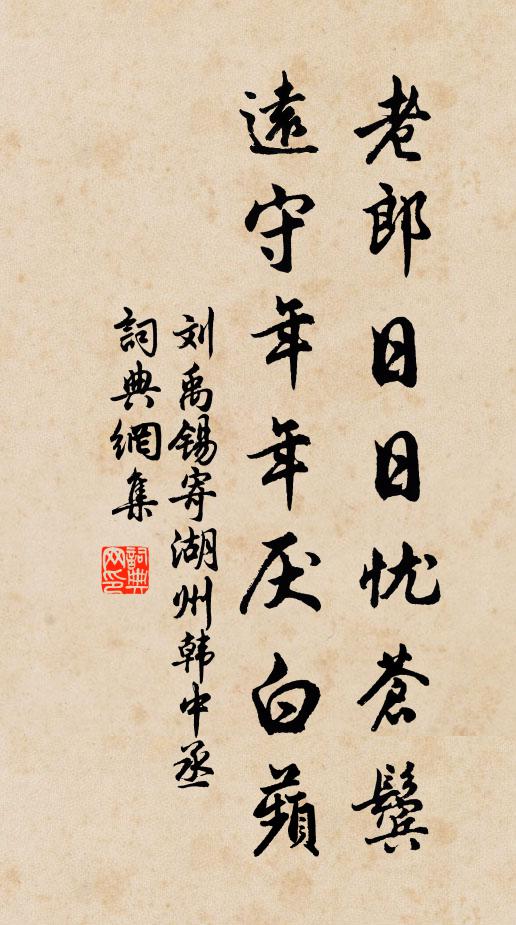 老郎日日忧蒼鬓
遠守年年厌白蘋
刘禹锡寄湖州韩中丞
詞典網集
詞典网印